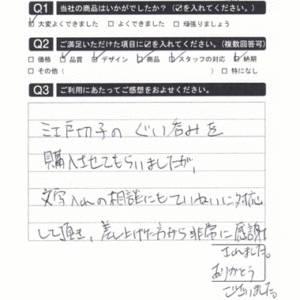 Q1 当社の商品はいかがでしたか？(☑を入れてください。)
☑大変よくできました □よくできました □頑張りましょう
Q2 ご満足いただけた項目に☑を入れてください。(複数回答可)
□価格 ☑品質 ☑デザイン ☑商品 □スタッフの対応 ☑納期
□その他( )□特になし
Q3 ご利用にあたってご感想をおよせください。
江戸切子のぐい呑みを
購入させてもらいましたが、
文字入れの相談にもていねいに対応
して頂き、差し上げた方から非常に感謝
されました。
ありがとう
ございました。